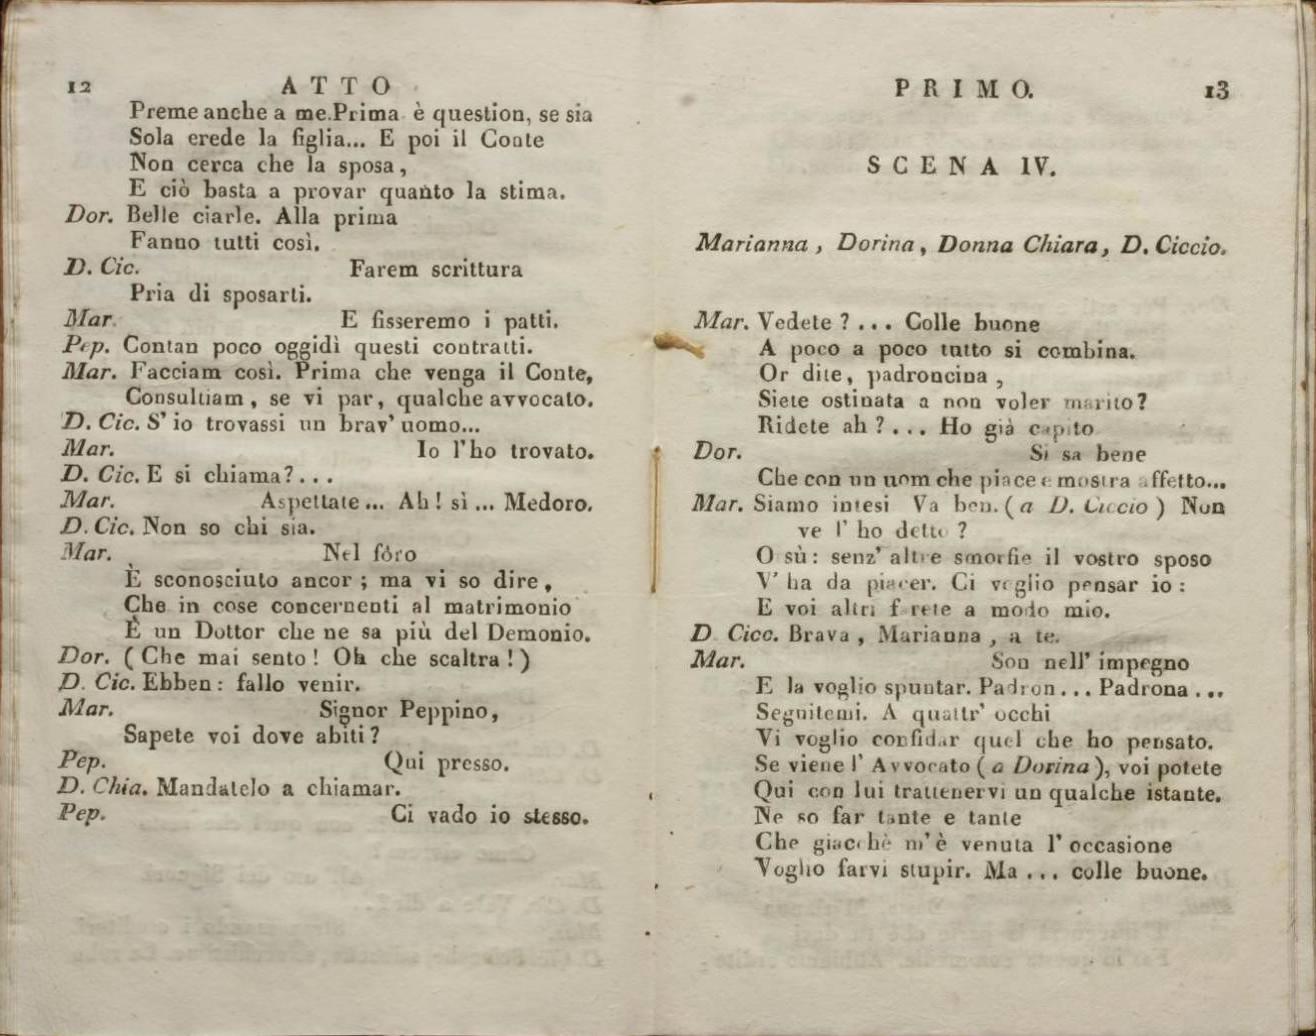 12 ATTO
Preme anche a me. Prima è question, se sia
Sola erede la figlia... E poi il Conte
Non cerca che la sposa,
E ciò basta a provar quanto la stima.
Dor. Belle ciarle. Alla prima
Fanno tutti così.
D. Cic. Farem scrittura
Pria di sposarti.
Mar. E fisseremo i patti.
Pep. Contan poco oggidì questi contratti.
Mar. Facciam così. Prima che venga il Conte,
Consultiam, se vi par, qualche avvocato.
D. Cic. S' io trovassi un brav' uomo...
Mar. Io l'ho trovato.
D. Cic. E si chiama?...
Mar. Aspettate... Ah! sì... Medoro.
D. Cic. Non so chi sia.
Mar. Nel fôro
È sconosciuto ancor; ma vi so dire,
Che in cose concernenti al matrimonio
È un Dottor che ne sa più del Demonio.
Dor. (Che mai sento! Oh che scaltra!)
D. Cic. Ebben: fallo venir.
Mar. Signor Peppino,
Sapete voi dove abiti?
Pep. Qui presso.
D. Chia. Mandatelo a chiamar.
Pep. Ci vado io stesso.
PRIMO. 13
SCENA IV.
Marianna, Dorina, Donna Chiara, D. Ciccio.
Mar. Vedete?... Colle buone
A poco a poco tutto si combina.
Or dite, padroncina,
Siete ostinata a non voler marito?
Ridete ah?... Ho già capito
Dor. Si sa bene
Che con un uom che piace e mostra affetto...
Mar. Siamo intesi Va ben. (a D. Ciccio) Non
ve l' ho detto?
O sù: senz' altre smorfie il vostro sposo
V' ha da piacer. Ci voglio pensar io:
E voi altri farete a modo mio.
D. Cicc. Brava, Marianna, a te.
Mar. Son nell' impegno
E la voglio spuntar. Padron... Padrona...
Seguitemi. A quattr' occhi
Vi voglio confidar quel che ho pensato.
Se viene l' Avvocato (a Dorina), voi potete
Qui con lui trattenervi un qualche istante.
Ne so far tante e tante
Che giacchè m' è venuta l' occasione
Voglio farvi stupir. Ma... colle buone.